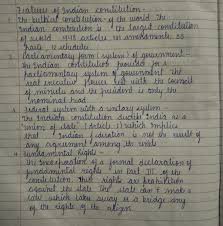 Features of Indian constitution -
The bulkiest constitution of the world The
Indian constitution is the largest constitution
of world with articles in amendments 22
Parts, 12 schedules
Parliamentary form system of government -
the Indian constitution provides for a
parliamentary system of government the
real executive power rest with the council
of ministers and the president is only the
nominal head
Federal system with a unitary system -
The Indian constitution India as a
union of state (Article 1) which implies
that Indian is not the result of
any agreement among its units
Fundamental Rights -
the incorporation of a formal declaration of
fundamental rights in Part III of the
constitution that rights are prohibition
against the state the state can't make a
law which takes away or a bridge any
of the rights of the citizen